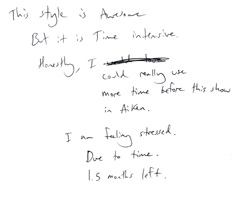 This style is Awesome
But it is Time intensive.
Honestly, I
could really use
more time before this show
in Aiken.
I am feeling stressed.
Due to time.
1.5 months left.